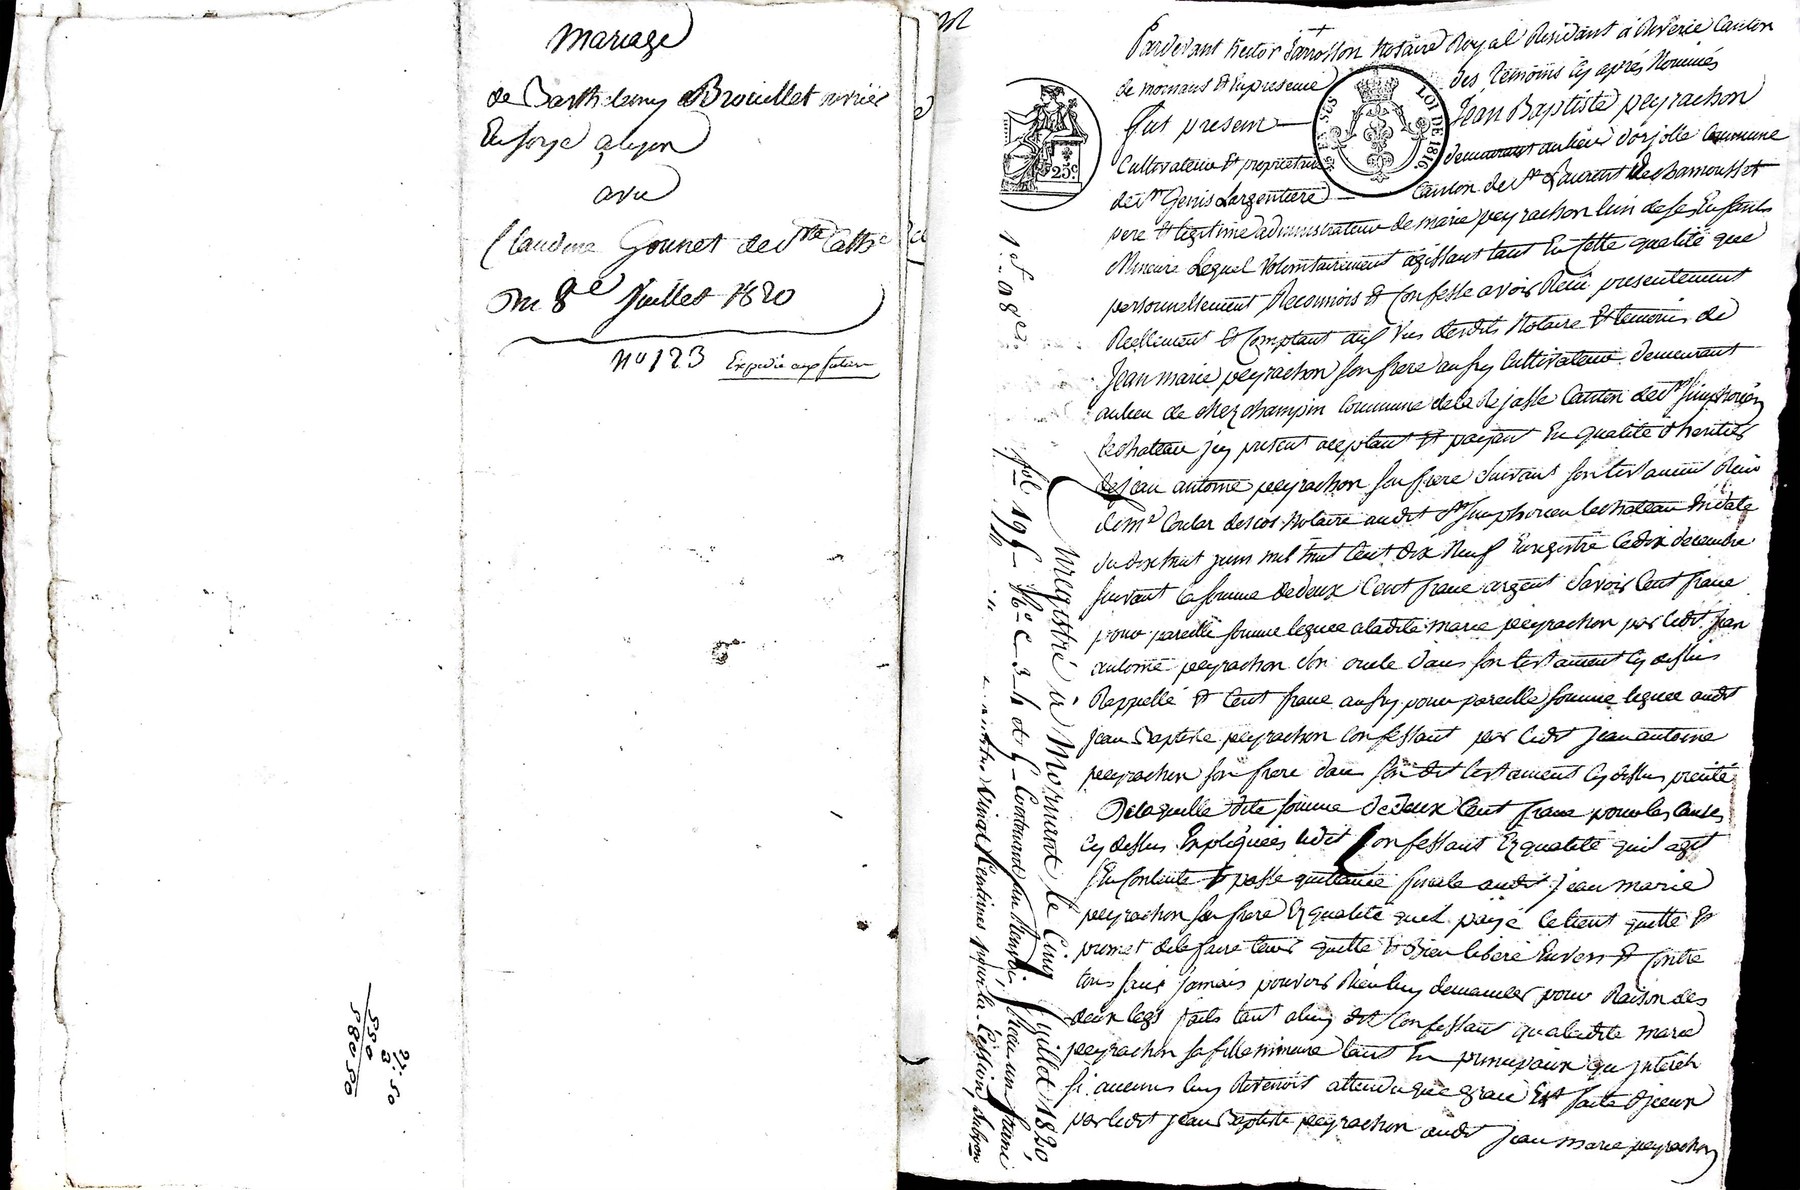 Mariage
de Barthelemy Brouillet ouvrier
En forge a lyon
avec
Claudine Gounet de Ste Cathe
Du 8e Juillet 1820
No 123 Expédié aux futurs
27.50
3
550
580.50
Pardevant hector Notaire Royal Résidant à Riverie Canton
de mornant Et En presence des temoins Cy après Nommés
fut present Jean Baptiste peyrachon
Cultivateur Et proprietaire demeurant au lieu d'orjolle Commune
de St Genis Largentiere Canton de St Laurent de chamousset
LOI DE 1816
25c
pere Et légitime administrateur de marie peyrachon lun de ses Enfants
Mineure Lequel Volontairement agissant tant En cette qualité que
personnellement Reconnois Et Confesse avoir Reçu presentement
Reellement Et Comptant au Vu desdits Notaire Et temoins de
Jean marie peyrachon son frere aussy Cultivateur demeurant
au lieu de chez champin Commune de la Rejasse Canton de St Simphorien
le chateau icy present acceptant Et payant En qualité d'heritier
de jean antoine peyrachon son frere Suivant son testament Reçu
de Me Notaire audit St Simphorien le chateau En date
du dix huit juin mil huit Cent dix Neuf Enregistré Le dix decembre
suivant la somme de deux Cent franc argent Savoir Cent franc
pour pareille somme leguee a ladite marie peyrachon par ledit jean
antoine peyrachon son oncle dans son testament Cy dessus
Rappellé Et Cent franc aussy pour pareille somme leguee audit
jean Baptiste peyrachon Confessant par ledit jean antoine
peyrachon son frere dans son dit testament Cy dessus
De laquelle dite somme de deux Cent franc pour les Causes
Cy dessus Expliquées ledit Confessant En qualité quil agit
Sen Contente Et passe quittance finale audit jean marie
peyrachon son frere En qualité quil paye le tient quitte Et
promet de le faire tenir quitte Et Bien libéré Envers Et Contre
tous sans jamais pouvoir Rien luy demander pour Raison des
deux legs faits tant a luy dit Confessant qua ladite marie
peyrachon sa fille mineure tant En principaux qu interets
Si aucuns luy Revenois attendu que grace Est faite d'iceux
par ledit jean Baptiste peyrachon audit Jean marie peyrachon
1 f. 08 c.
Enregistré à Mornant le Cinq Juillet 1820,
fol 195 Vo C 3 4 et 5 Contenant un Renvoi, Reçu un franc
Vingt Centimes pour la Cession, Subvon